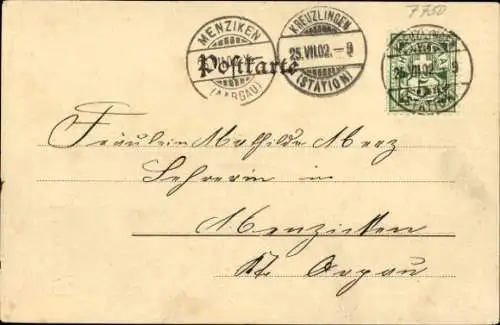 7750
MENZIKEN
(AARGAU)
KREUZLINGEN
25.VII.02.-9
(STATION)
KREUZLINGEN
25.VII.02.-9
(STATION)
Postkarte
Fräulein Mathilde Merz
Lehrerin in
Menziken
Kt. Argau